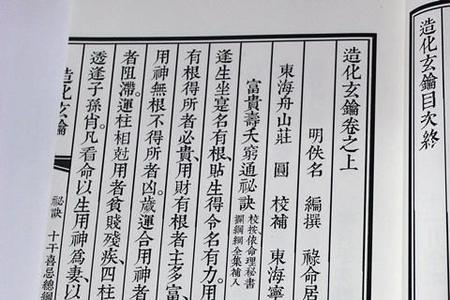 造化玄鑰目次終
造化玄鑰卷之上
明佚名 編撰 祿命居
東海舟山莊 圓 校補 東海寧
富貴壽夭窮通祕訣
校按依命理秘書
全集補入
逢生坐寔名有根、貼生得令名有力。用
有根得所者必貴。用財有根者主多富、
用神無根不得所者凶。歲運合用神
者阻滯。運柱相尅用者貧賤殘疾、四柱
透逢子孫肖。凡看命以生用神爲妻、以
造化玄鑰 祕訣 十干喜忌總綱